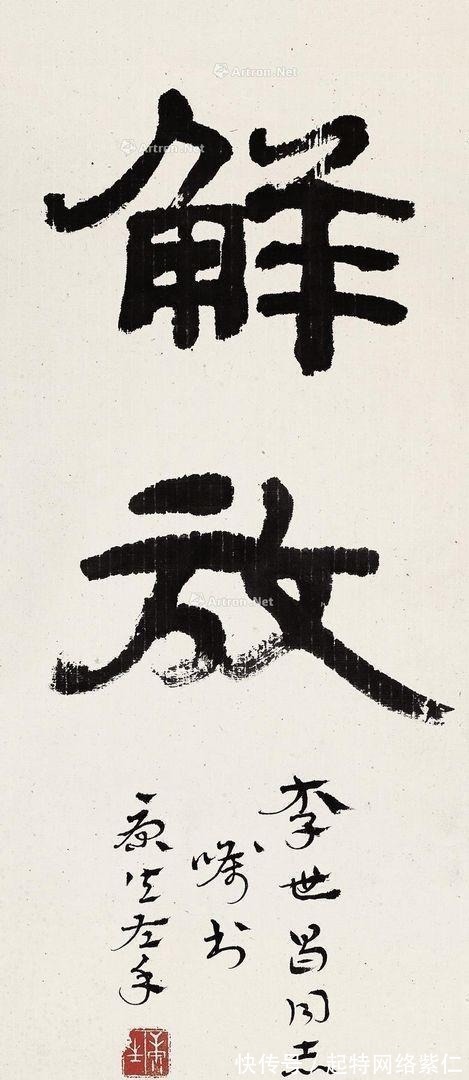 解放
李世昌同志
嘱书
康生左手
康生
Artron.Net
Artron.Net
Artron.Net
快传号/起特网络紫仁